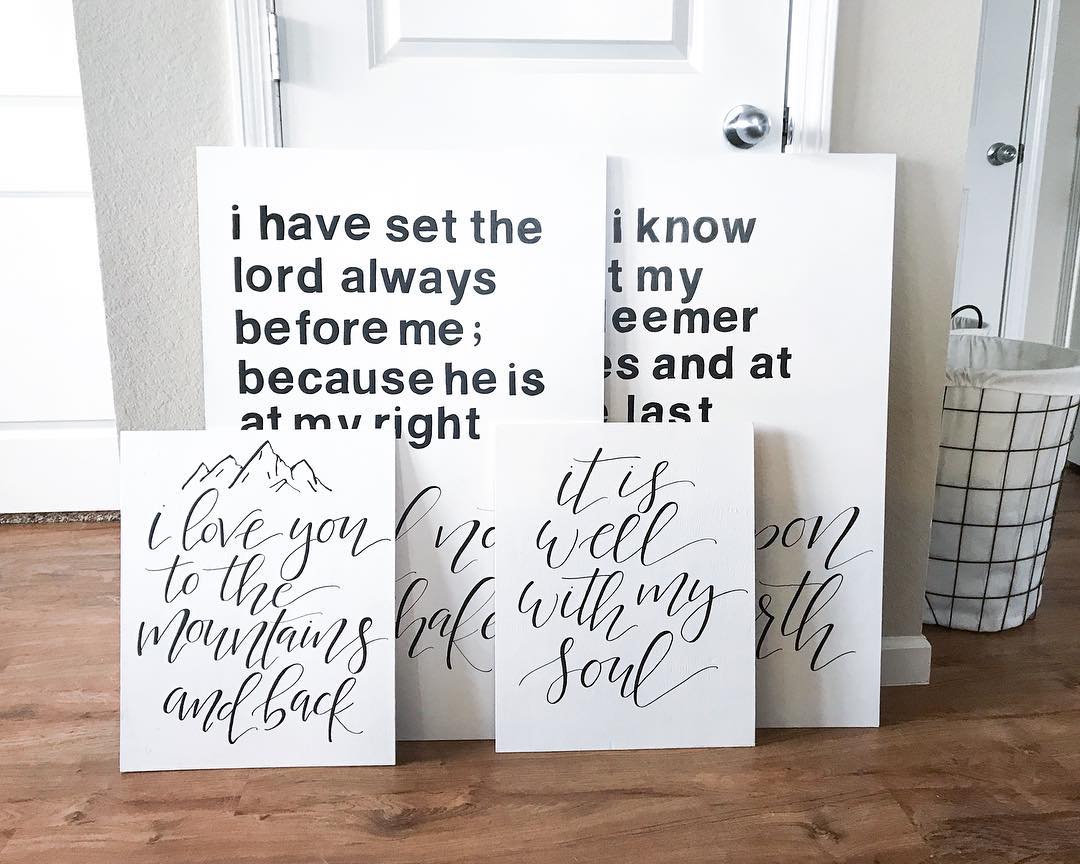 i have set the
lord always
before me;
because he is
at my right
i know
my
and at
last
i love you
to the
mountains
and back
it is
well
with my
soul